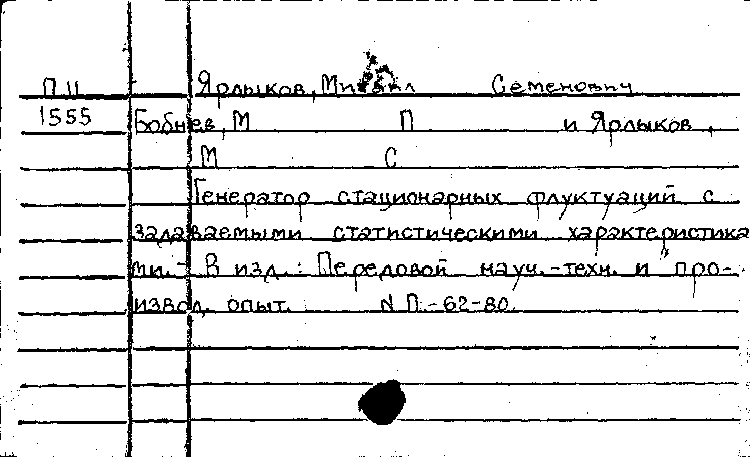 П II Ярлыков, Михаил Семенович
1555 Бобнев, М П и Ярлыков,
М С
Генератор стационарных флуктуаций с
задаваемыми статистическими характеристика
ми. - В изд.: Передовой науч.-техн. и про-
извод. опыт. N П.-62-80.